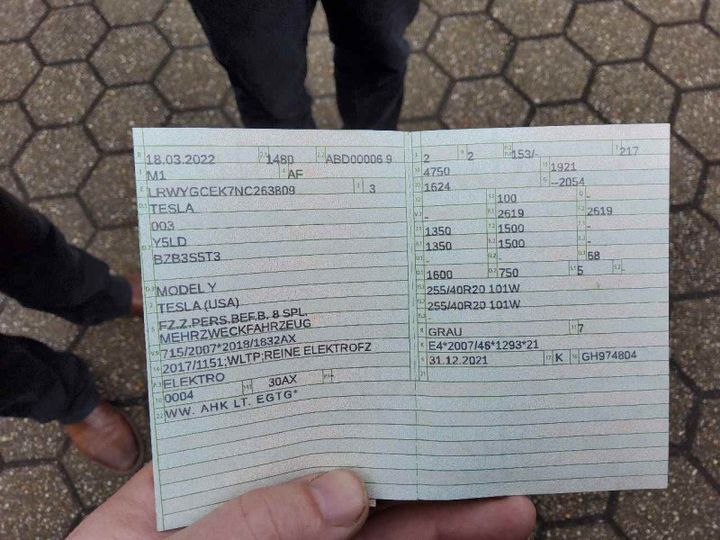 18.03.2022 1480 ABD00006 9
M1 AF
LRWYGCEK7NC263809 3
TESLA
003
Y5LD
BZB3S5T3
MODEL Y
TESLA (USA)
FZ.Z.PERS.BEF.B. 8 SPL.
MEHRZWECKFAHRZEUG
715/2007*2018/1832AX
2017/1151;WLTP;REINE ELEKTROFZ
ELEKTRO
0004 30AX -
WW. AHK LT. EGTG*
2 2 153/- 217
4750 1921
1624 --2054
100 -
- 2619 2619
1350 1500 -
1350 1500 -
- - 68
1600 750 5 -
255/40R20 101W
255/40R20 101W
GRAU 7
E4*2007/46*1293*21
31.12.2021 K GH974804